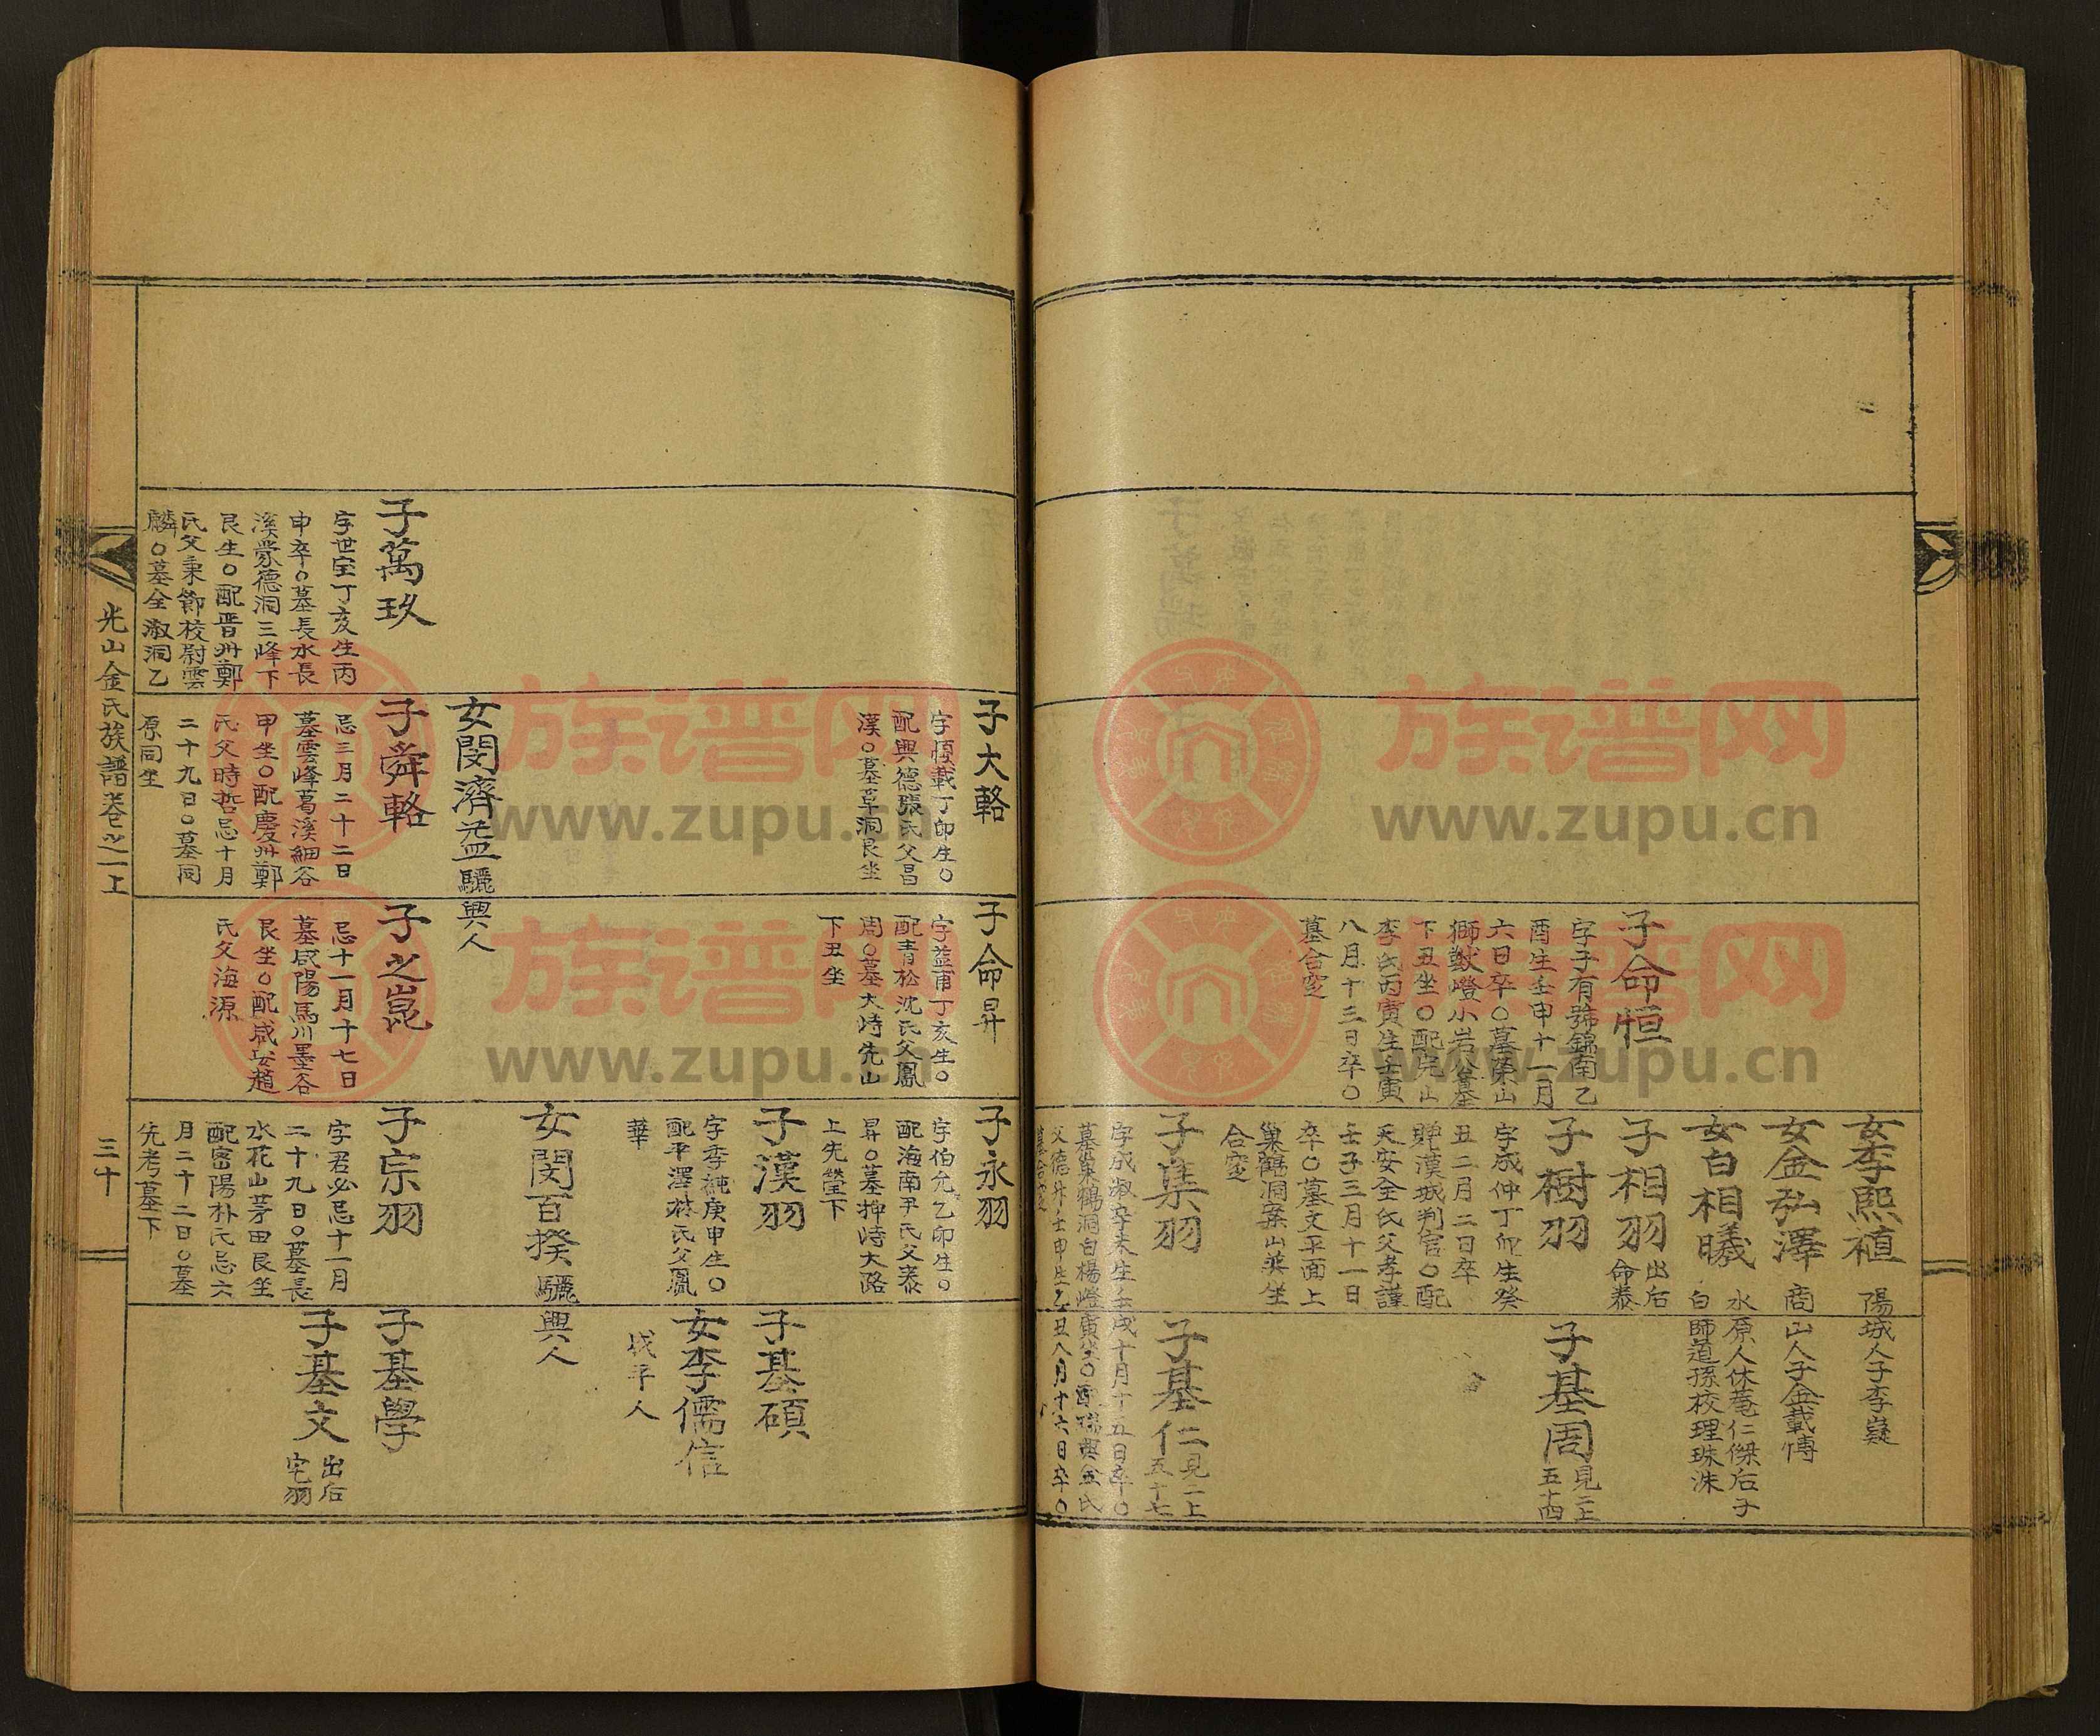 子命恒
字子有號錦南乙
酉生壬申十一月
六日卒○墓第山
獅獣嶝小岩公墓
下丑坐○配完山
李氏丙寅生壬寅
八月十三日卒○
墓合窆
女李熙禃
陽城人子李嶷
女金弘澤
商山人子金載博
女白相曦
水原人休菴仁傑后子
白師道孫校理珠洙
子相羽
出后
命泰
子樹羽
字成仲丁卯生癸
丑二月二日卒
贈漢城判官○配
天安全氏父孝謹
壬子三月十一日
卒○墓文平面上
巢鶴洞案山巽坐
合窆
子基周
見二上
五十四
子集羽
字成淑辛未生壬戌十月十五日卒○
墓巢鶴洞白楊嶝寅坐○配瑞興金氏
父德升壬申生乙丑八月十六日卒○
子基仁
見二上
五十七
子大輅
字順載丁卯生○
配興德張氏父昌
漢○墓草洞艮坐
子命昇
字益甫丁亥生○
配青松沈氏父鳳
周○墓大峙先山
下丑坐
子永羽
字伯允乙卯生○
配海南尹氏父泰
昇○墓抑峙大路
上先塋下
子漢羽
字季純庚申生○
配平澤林氏父鳳
華
子基碩
女李儒信
咸平人
女閔百揆
驪興人
女閔濟益
驪興人
子萬玖
字世宝丁亥生丙
申卒○墓長水長
溪蒙德洞三峰下
艮坐○配晋州鄭
氏父秉節校尉雲
麟○墓全淑洞乙
子舜輅
忌三月二十二日
墓雲峰葛溪細谷
甲坐○配慶州鄭
氏父時哲忌十月
二十九日○墓同
原同坐
子之崑
忌十一月十七日
墓咸陽馬川墨谷
艮坐○配咸安趙
氏父海源
子宗羽
字君必忌十一月
二十九日○墓長
水花山茅田艮坐
配密陽朴氏忌六
月二十二日○墓
先考墓下
子基學
子基文
出后
宅羽
光山金氏族譜卷之一上
三十
族谱网
www.zupu.cn
族谱网
www.zupu.cn
族谱网
www.zupu.cn
族谱网
www.zupu.cn